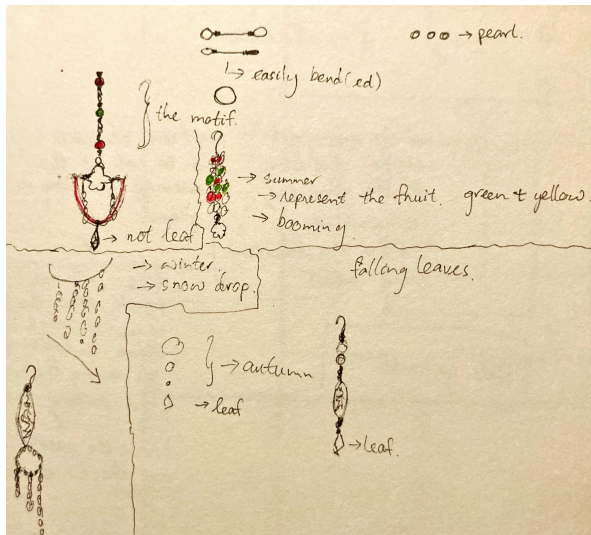 → pearl.
↳ easily bend(ed)
the motif.
→ summer
→ represent the fruit. green + yellow.
→ booming.
→ not leaf
→ winter.
→ snow drop.
falling leaves.
→ autumn
→ leaf
→ leaf.